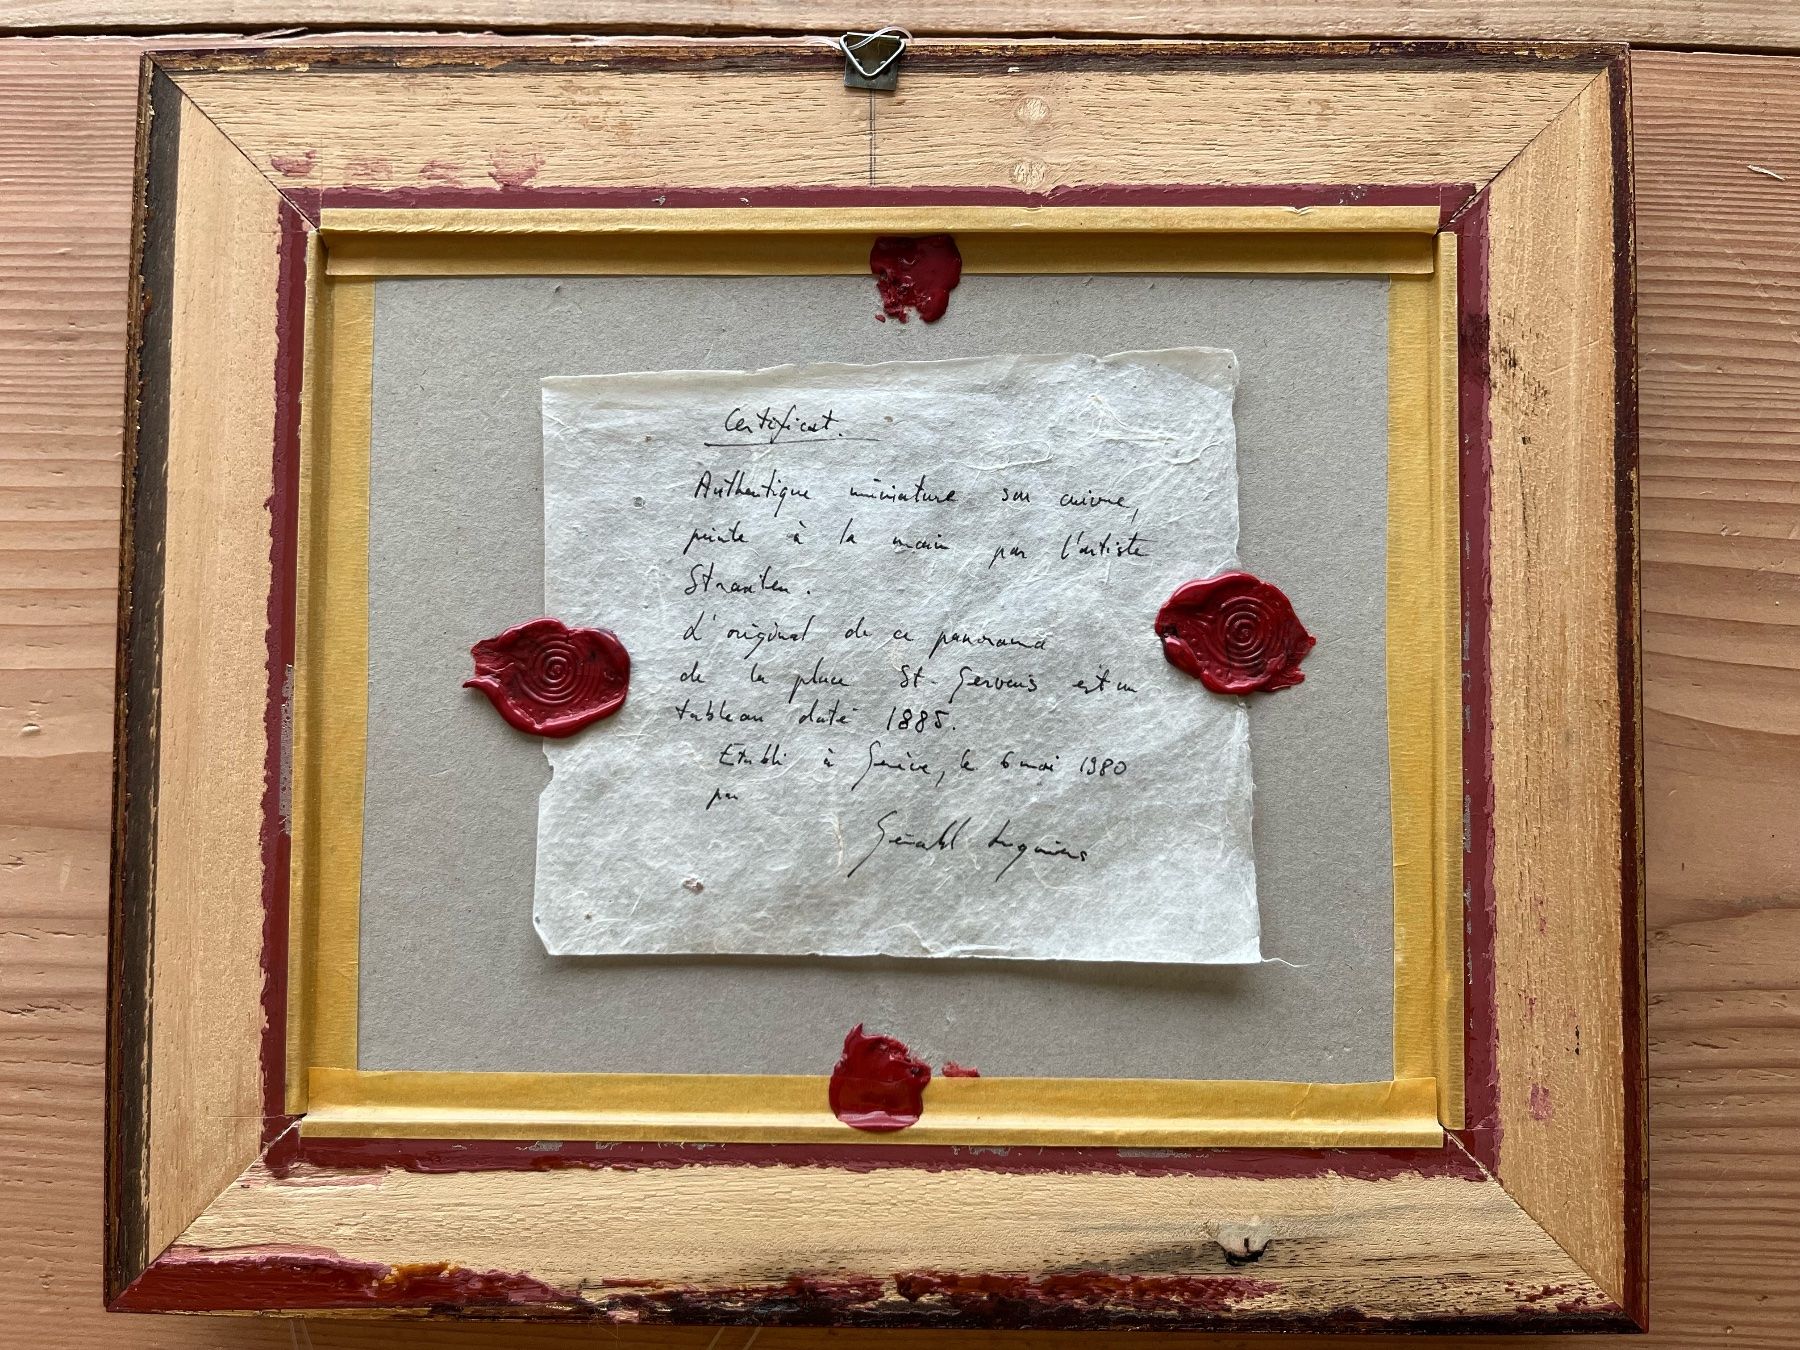 Certificat.
Authentique miniature sur cuivre,
peinte à la main par l'artiste
L'original de ce panorama
de la place St-Gervais est un
tableau daté 1885.
Etabli à Genève, le 6 mai 1980
par
Gérald